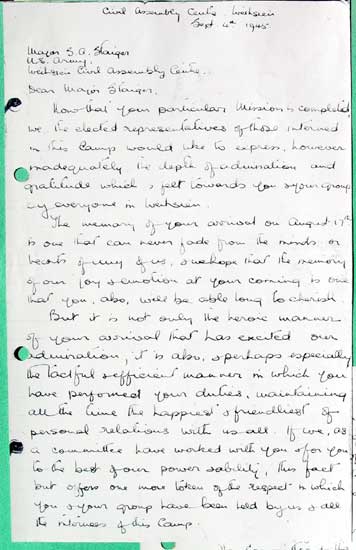 Civil Assembly Centre, Weihsien
Sept 4th 1945
Major S. A. Staiger,
U.S. Army,
Weihsien Civil Assembly Centre.
Dear Major Staiger,
Now that your particular Mission is completed
we, the elected representatives of those interned
in this Camp would like to express, however
inadequately the depth of admiration and
gratitude which is felt towards you & your group
by everyone in Weihsien.
The memory of your arrival on August 17th
is one that can never fade from the minds or
hearts of any of us, & we hope that the memory
of our joy & emotion at your coming is one
that you, also, will be able long to cherish.
But it is not only the heroic manner
of your arrival that has excited our
admiration, it is also, & perhaps especially
the tactful & efficient manner in which you
have performed your duties, maintaining
all the time the happiest & friendliest of
personal relations with us all. If we, as
a committee have worked with you & for you
to the best of our power & ability, this fact
but offers one more token of the respect in which
you & your group have been held by us & all
the internees of this Camp.